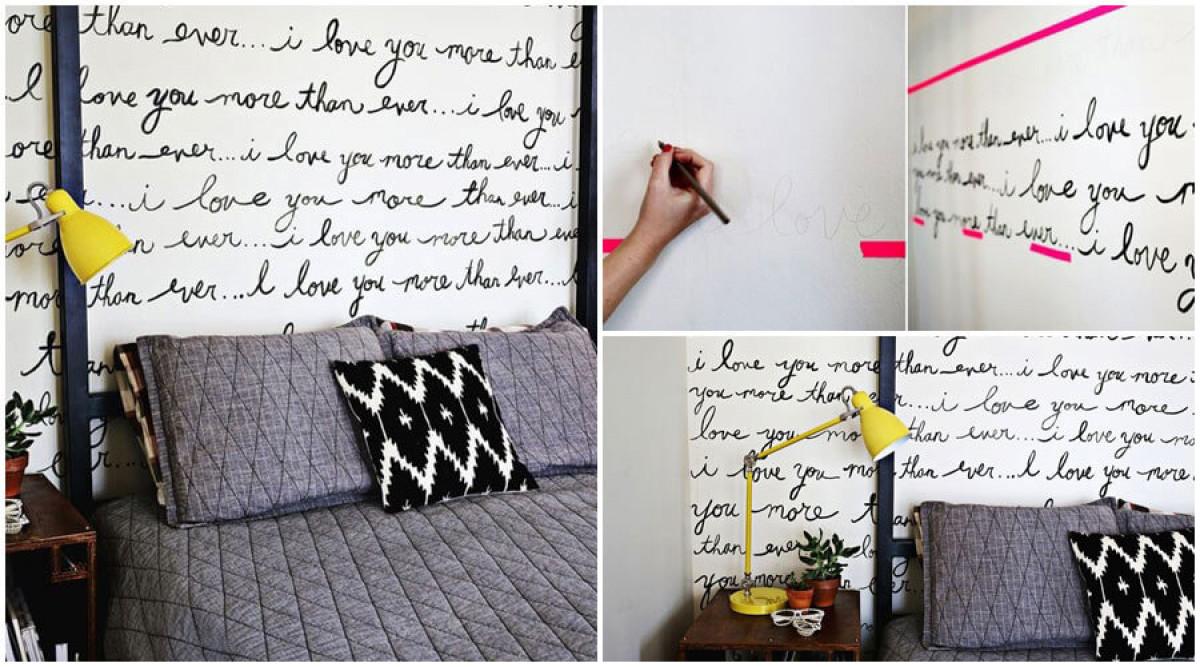 ore than ever... i love you more than e
I love you more than ever... i love you
ore than ever... i love you more than ever... i
... i love you more than ever... i
ore than ever... i love you more than eve
more than ever... I love you more than ever...
than
love
i love you more than ever... i love you
i love you m
love you more than ever... i love
i love you more than ever... i love you more i
you more than ever... i love you more
love you mo than ever... i love you mo
i love you mo than ever... I love you more
you more
than ever
you more ever